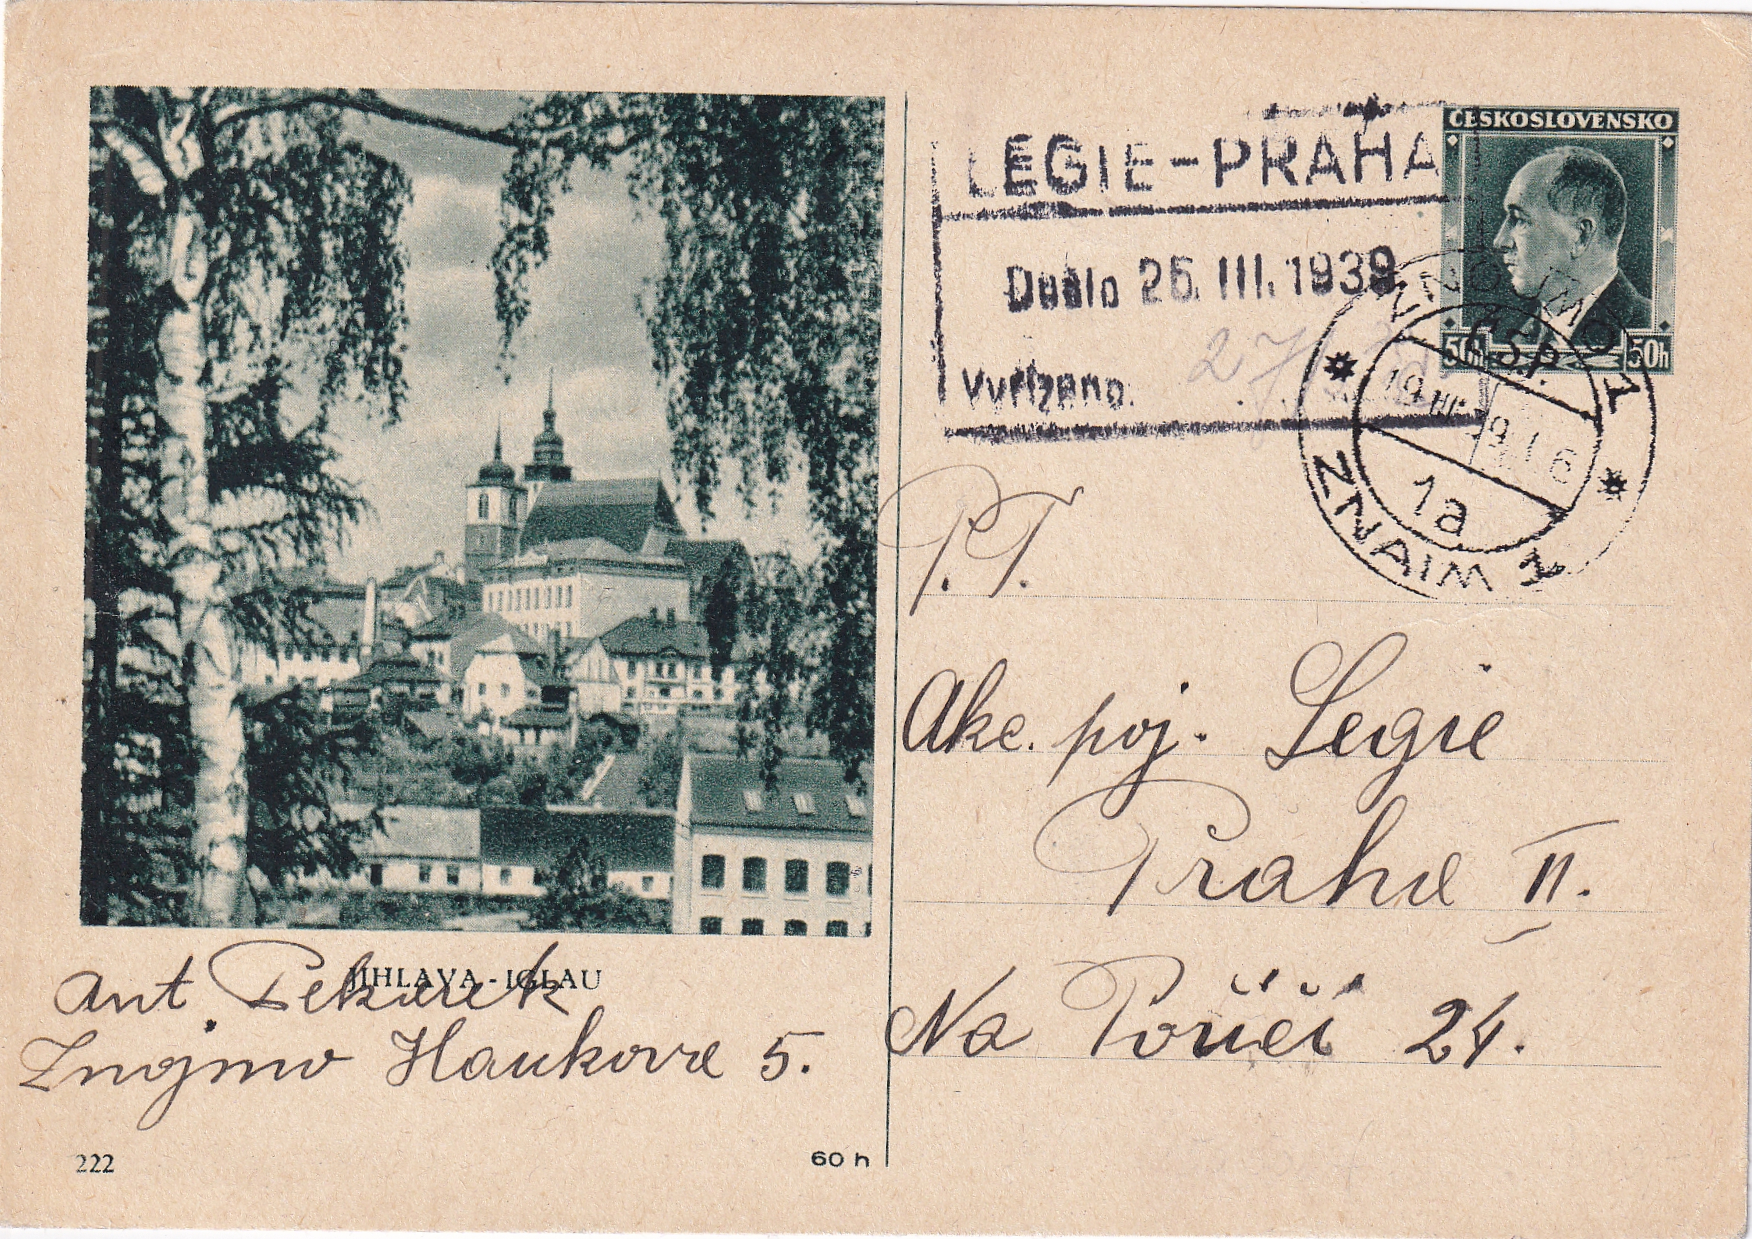 ČESKOSLOVENSKO
50h 50h
LEGIE-PRAHA
Došlo 25. III. 1939
Vyřízeno:
ZNOJMO 1
19. III. 
1a
ZNAIM 1
P.T.
Akc. poj. Legie
Praha II.
Na Poříčí 24.
JIHLAVA - IGLAU
Ant. Pekárek
Znojmo Haukova 5.
222
60 h